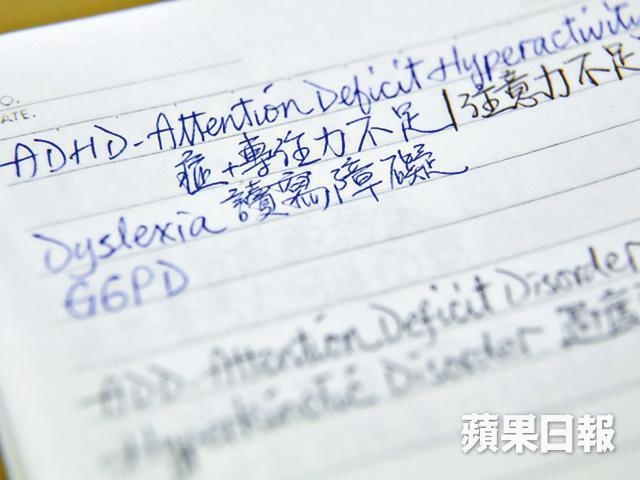 O.
ATE.
ADHD-Attention Deficit Hyperactivity
症+專注力不足/注意力不足
Dyslexia 讀寫障礙
G6PD
ADD-Attention Deficit Disorder
Hyperkinetic Disorder
蘋果日報